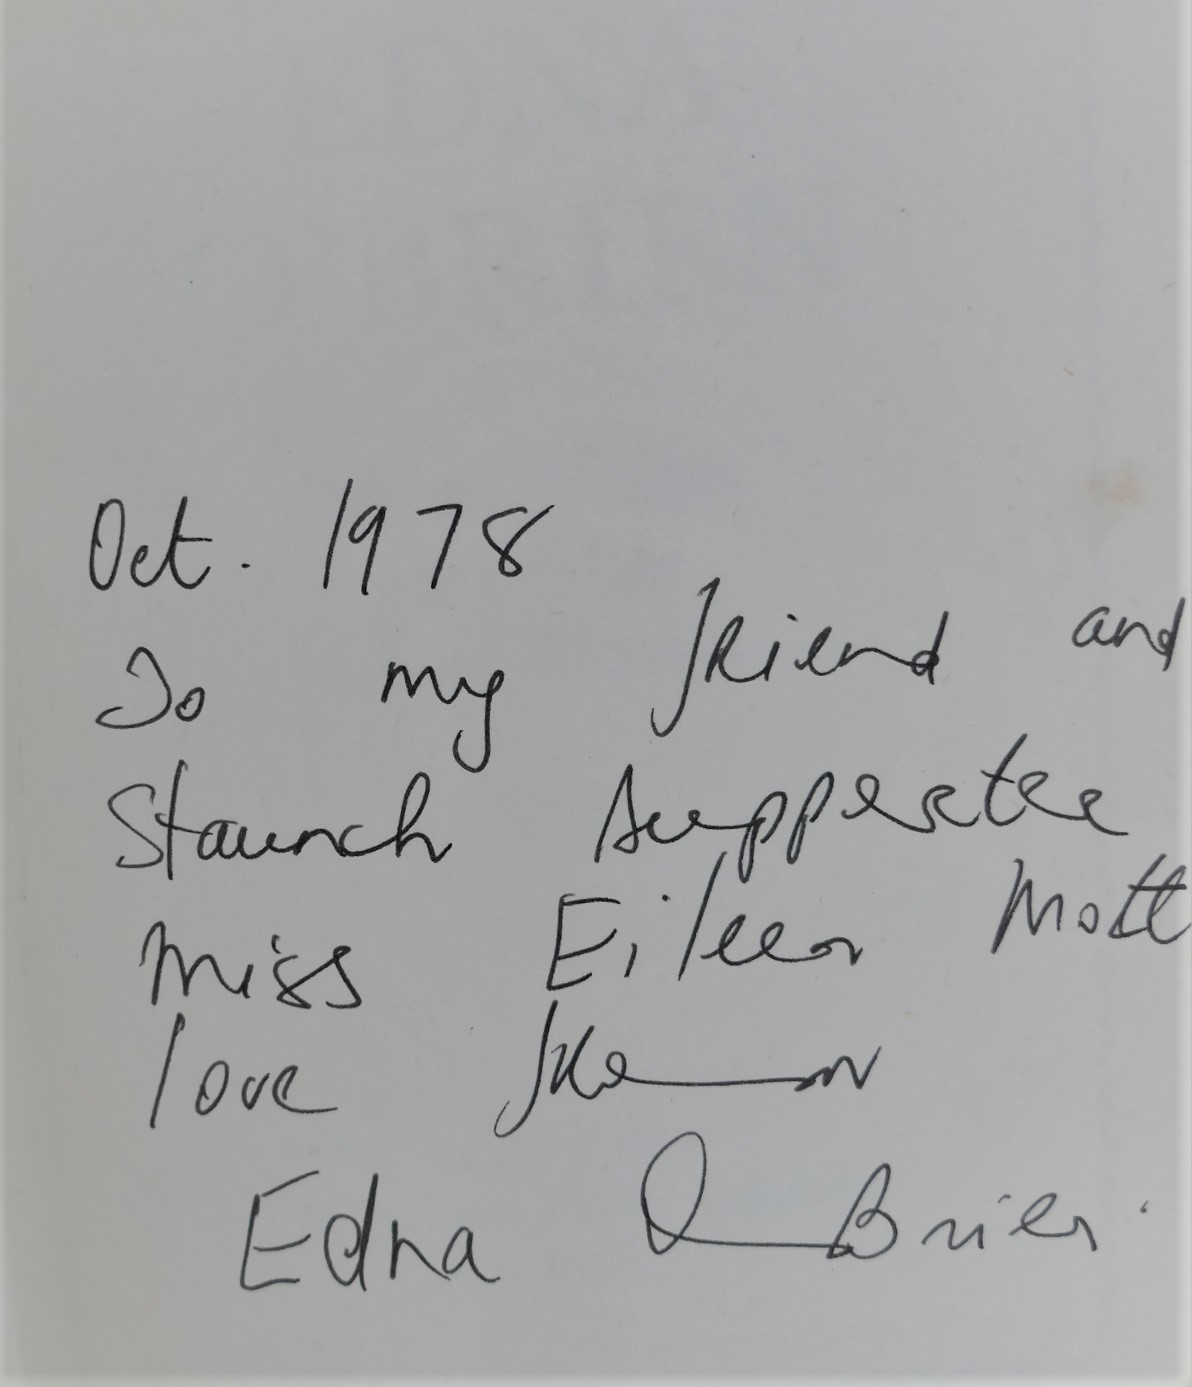 EDNA
O'BRIEN
Oct. 1978
To my friend and
Staunch supporter
Miss Eileen Mott
love from
Edna O Brien.